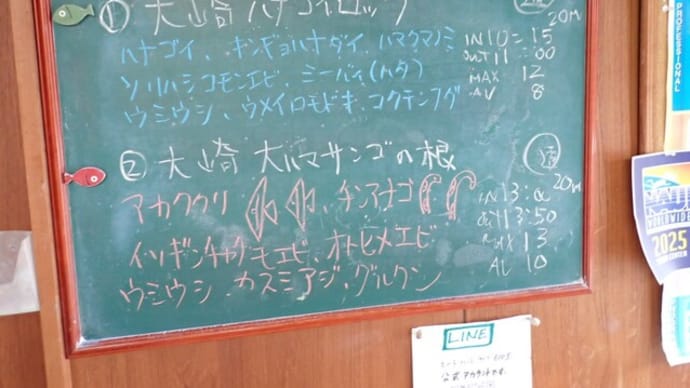 ① 大崎 ハナゴイロック
20M
ハナゴイ、キンギョハナダイ、ハマクマノミ
IN 10:15
ソリハシコモンエビ、ミーバイ(ハタ)
OUT 11:00
MAX 12
ウミウシ、ウメイロモドキ、コクテンフグ
AV 8
② 大崎 大アマサンゴの根
20M
アカククリ、チンアナゴ
IN 13:00
OUT 13:50
イソギンチャクモエビ、オトヒメエビ
MAX 13
ウミウシ、カスミアジ、グルクン
AV 10
PROFESSIONAL
2025
LINE
公式アカウントです。